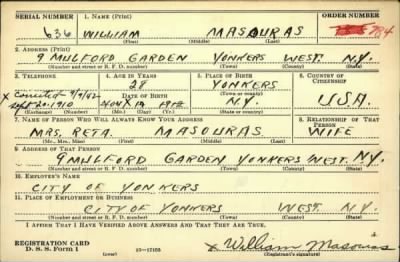 SERIAL NUMBER 1. NAME (Print) ORDER NUMBER
636 WILLIAM MASOURAS 784
(First) (Middle) (Last)
2. ADDRESS (Print)
9 MULFORD GARDEN YONKERS WEST. N.Y.
(Number and street or R. F. D. number) (Town) (County) (State)
3. TELEPHONE 4. AGE IN YEARS 5. PLACE OF BIRTH 6. COUNTRY OF CITIZENSHIP
28 YONKERS
x Corrected 4/9/42 DATE OF BIRTH (Town or county)
Sept 20-1910 1912 N.Y. U.S.A.
(Exchange) (Number) (Mo.) (Day) (Yr.) (State or country)
7. NAME OF PERSON WHO WILL ALWAYS KNOW YOUR ADDRESS 8. RELATIONSHIP OF THAT PERSON
MRS. RETA. MASOURAS WIFE
(Mr., Mrs., Miss) (First) (Middle) (Last)
9. ADDRESS OF THAT PERSON
9 MULFORD GARDEN YONKERS WEST. N.Y.
(Number and street or R. F. D. number) (Town) (County) (State)
10. EMPLOYER'S NAME
CITY OF YONKERS
11. PLACE OF EMPLOYMENT OR BUSINESS
CITY OF YONKERS WEST. N.Y.
(Number and street or R. F. D. number) (Town) (County) (State)
I AFFIRM THAT I HAVE VERIFIED ABOVE ANSWERS AND THAT THEY ARE TRUE.
REGISTRATION CARD x William Masouras
D. S. S. Form 1 (over) (Registrant's signature)